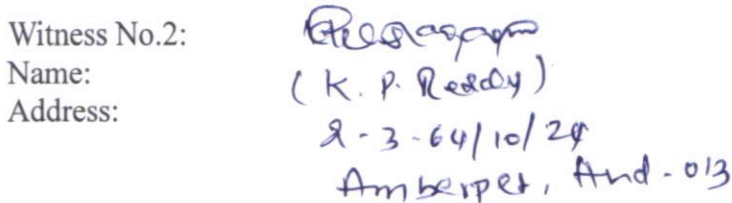 Witness No.2:
Name: (K. P. Reddy)
Address: 2-3-64/10/24
Amberpet, Hyd-013